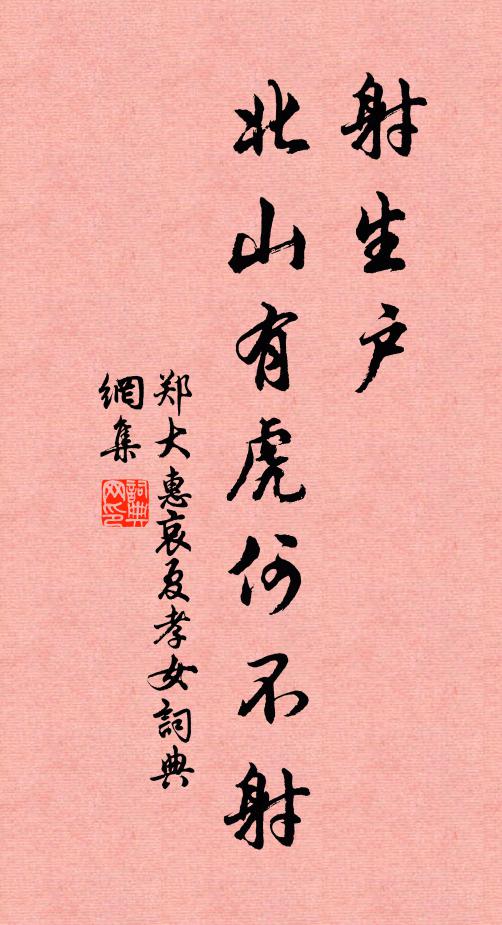 射生户
北山有虎何不射
郑大惠哀夏孝女詞典
網集
詞典
网印